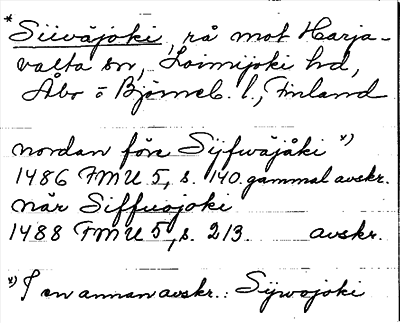 * Siiväjoki, rå mot Harja-
valta sn, Loimijoki hd,
Åbo o Björneb. l., Finland
nordan för Sijfwäjåki x)
1486 FMU 5, s. 140. gammal avskr.
när Siffuojoki
1488 FMU 5, s. 213 avskr.
x) I en annan avskr.: Sijwojoki